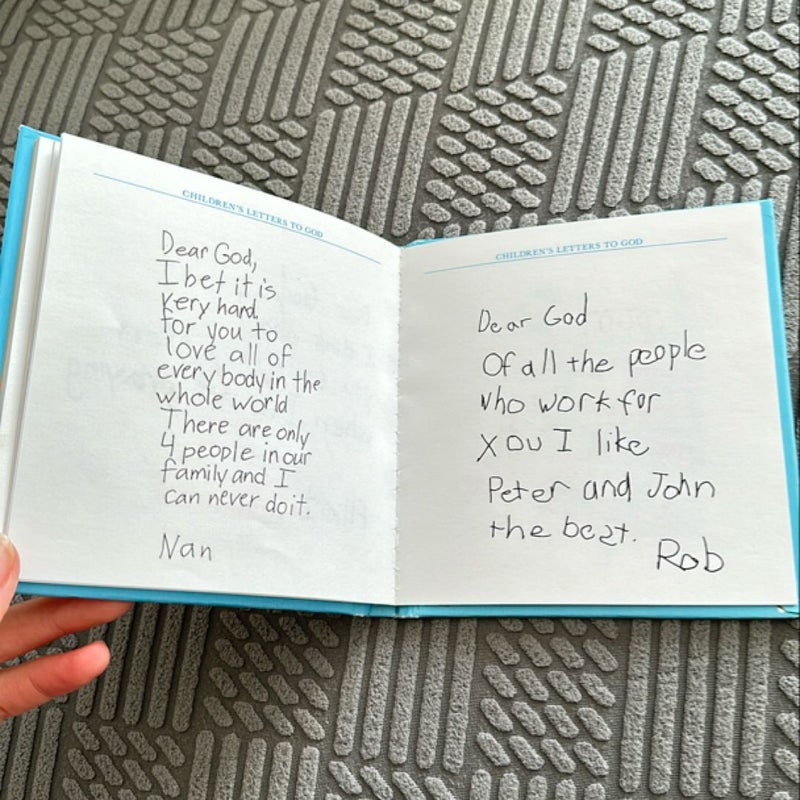 CHILDREN'S LETTERS TO GOD
Dear God,
I bet it is
very hard
for you to
love all of
every body in the
whole world
There are only
4 people in our
family and I
can never do it.
Nan
CHILDREN'S LETTERS TO GOD
Dear God
Of all the people
who work for
you I like
Peter and John
the best.
Rob